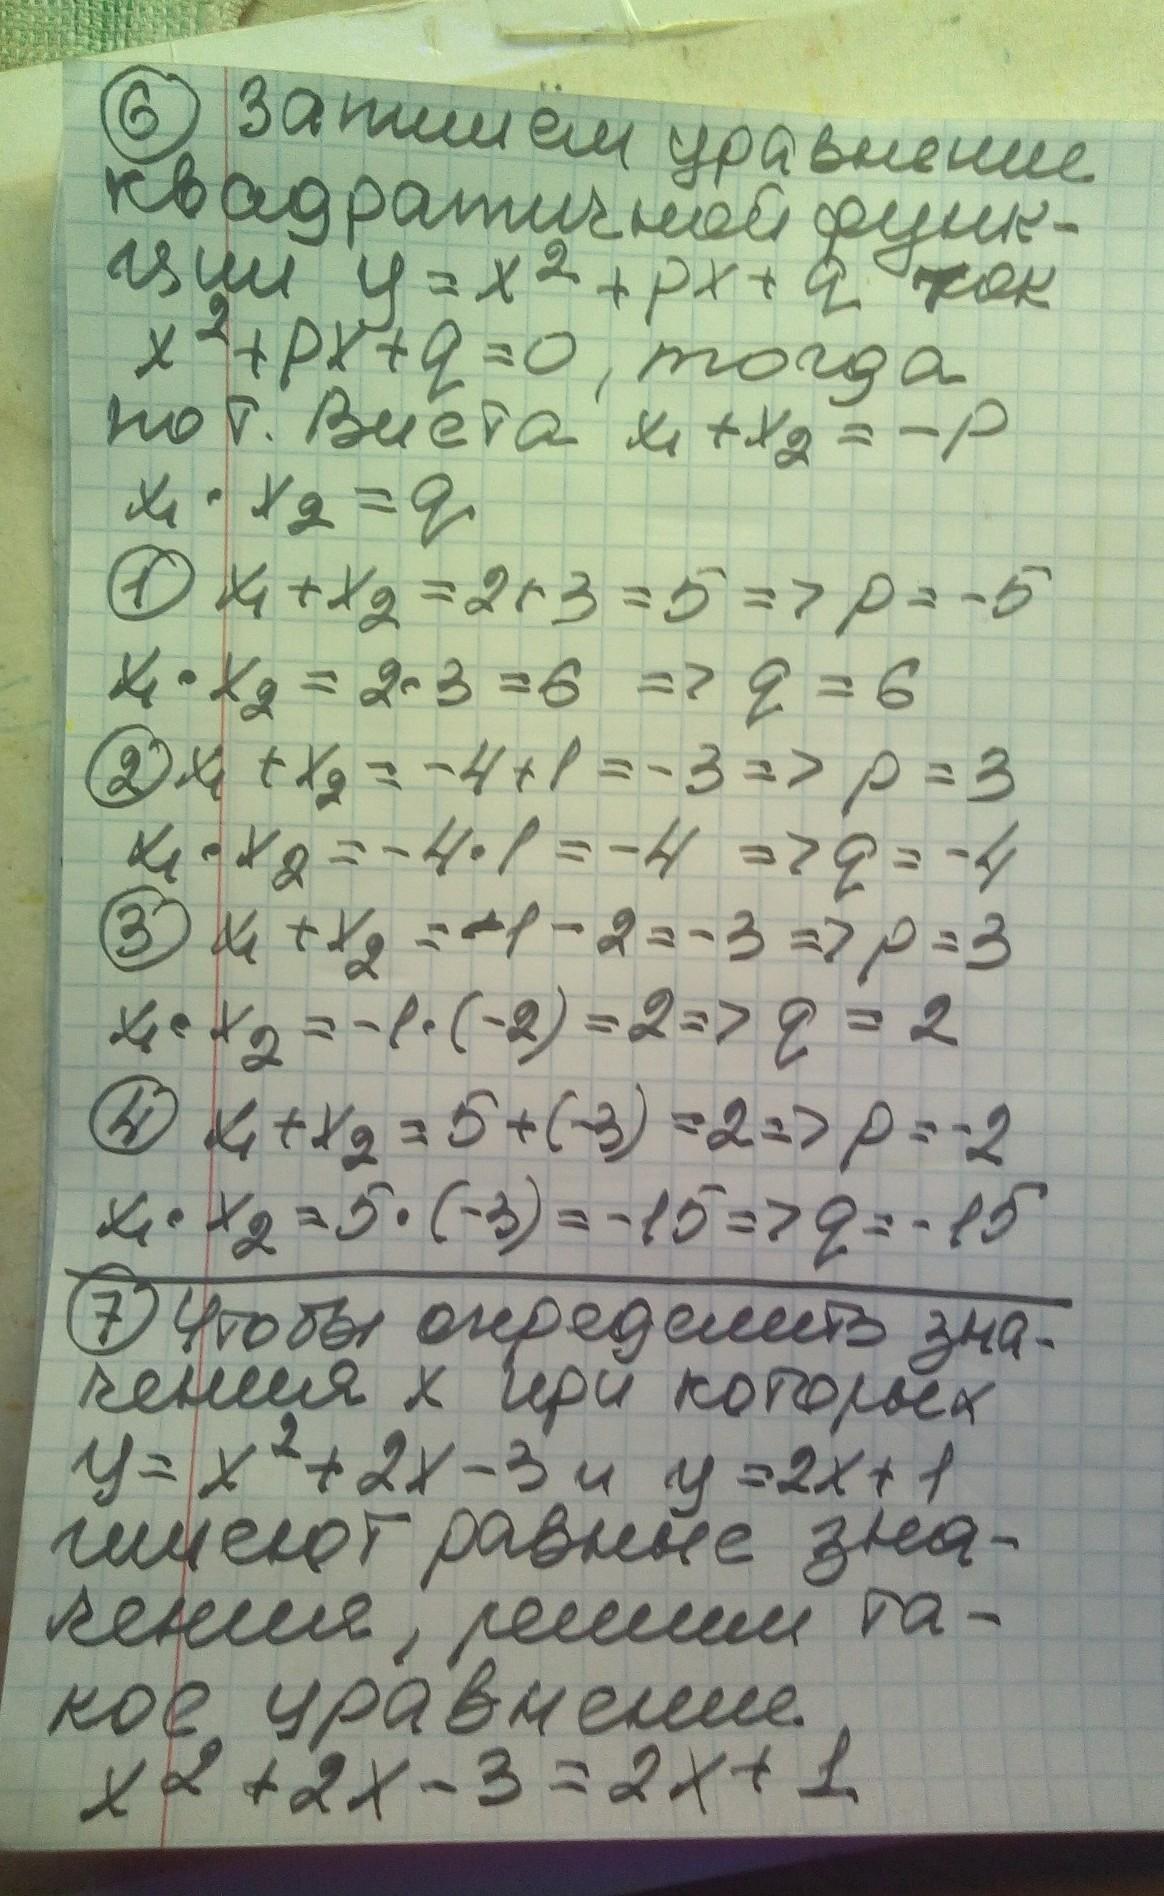 ⑥ Запишём уравнение
квадратичной функ-
ции y = x² + px + q так
x² + px + q = 0, тогда
по т. Виета x₁ + x₂ = -p
x₁ · x₂ = q
① x₁ + x₂ = 2+3 = 5 => p = -5
x₁ · x₂ = 2·3 = 6 => q = 6
② x₁ + x₂ = -4+1 = -3 => p = 3
x₁ · x₂ = -4·1 = -4 => q = -4
③ x₁ + x₂ = -1 - 2 = -3 => p = 3
x₁ · x₂ = -1·(-2) = 2 => q = 2
④ x₁ + x₂ = 5 + (-3) = 2 => p = -2
x₁ · x₂ = 5·(-3) = -15 => q = -15
⑦ Чтобы определить зна-
чения x при которых
y = x² + 2x - 3 и y = 2x + 1
имеют равные зна-
чения, решим та-
кое уравнение
x² + 2x - 3 = 2x + 1